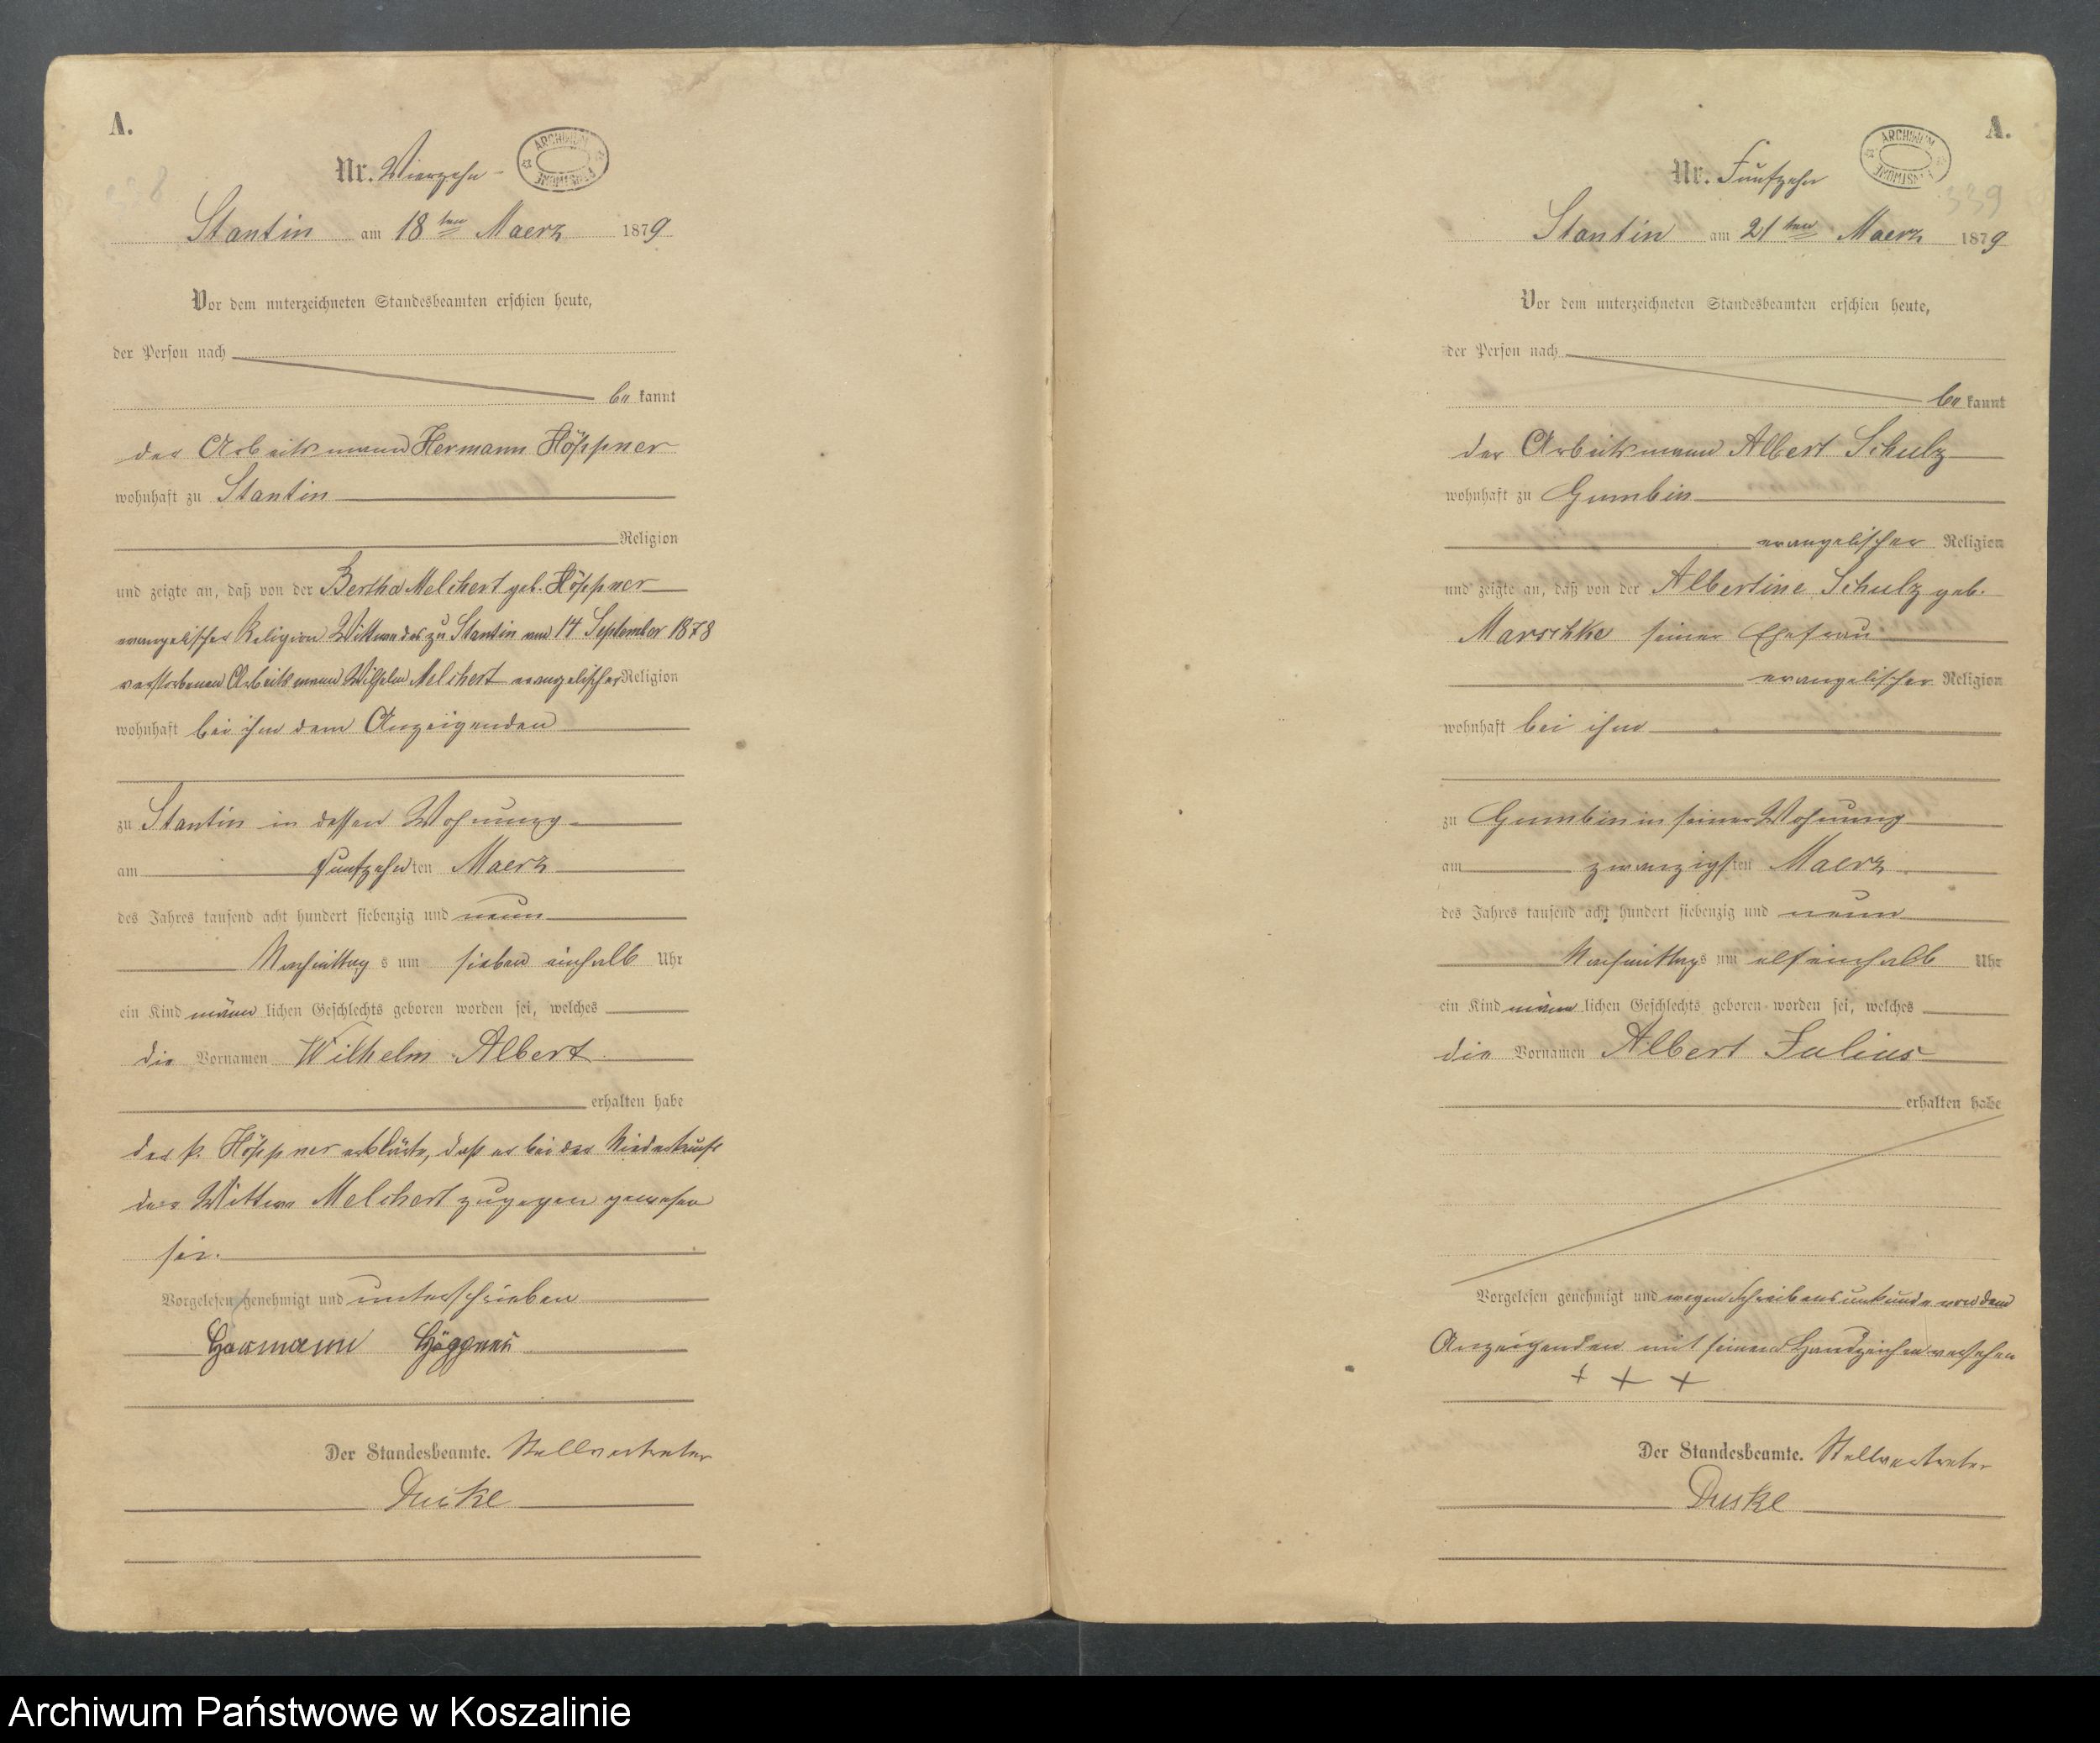 A.
Nr. Vierzehn
ARCHIWUM PAŃSTWOWE
Stantin am 18ten Maerz 1879
Vor dem unterzeichneten Standesbeamten erschien heute,
der Person nach
be kannt
der Arbeitsmann Hermann Höppner
wohnhaft zu Stantin
Religion
und zeigte an, daß von der Bertha Melchert geb. Höppner
evangelischer Religion Wittwe des zu Stantin am 14 September 1878
verstorbenen Arbeitsmann Wilhelm Melchert evangelischer Religion
wohnhaft bei ihm dem Anzeigenden
zu Stantin in dessen Wohnung
am funfzehn ten Maerz
des Jahres tausend acht hundert siebenzig und neun
Nachmittag s um sieben einhalb Uhr
ein Kind männ lichen Geschlechts geboren worden sei, welches
die Vornamen Wilhelm Albert
erhalten habe
der p. Höppner erklärte, daß er bei der Niederkunft
der Wittwe Melchert zugegen gewesen
sei.
Vorgelesen, genehmigt und unterschrieben
Hermann Höppner
Der Standesbeamte. Stellvertreter
Duske
A.
Nr. Funfzehn
ARCHIWUM PAŃSTWOWE
339
Stantin am 21ten Maerz 1879
Vor dem unterzeichneten Standesbeamten erschien heute,
der Person nach
be kannt
der Arbeitsmann Albert Schulz
wohnhaft zu Gumbin
evangelischer Religion
und zeigte an, daß von der Albertine Schulz geb.
Marschke seiner Ehefrau
evangelischer Religion
wohnhaft bei ihm
zu Gumbin in seiner Wohnung
am zwanzigs ten Maerz
des Jahres tausend acht hundert siebenzig und neun
Nachmittags um elf einhalb Uhr
ein Kind männ lichen Geschlechts geboren worden sei, welches
die Vornamen Albert Julius
erhalten habe
Vorgelesen genehmigt und wegen Schreibensunkunde von dem
Anzeigenden mit seinem Handzeichen versehen
+ + +
Der Standesbeamte. Stellvertreter
Duske
Archiwum Państwowe w Koszalinie